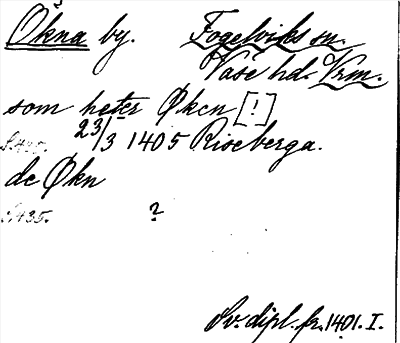 Økna by. Fogelviks sn.
Väse hd. Vrm.
som heter Økn [!]
S. 435. 23/3 1405 Riseberga.
de Økn
S. 435. ?
Sv. dipl. fr. 1401. I.